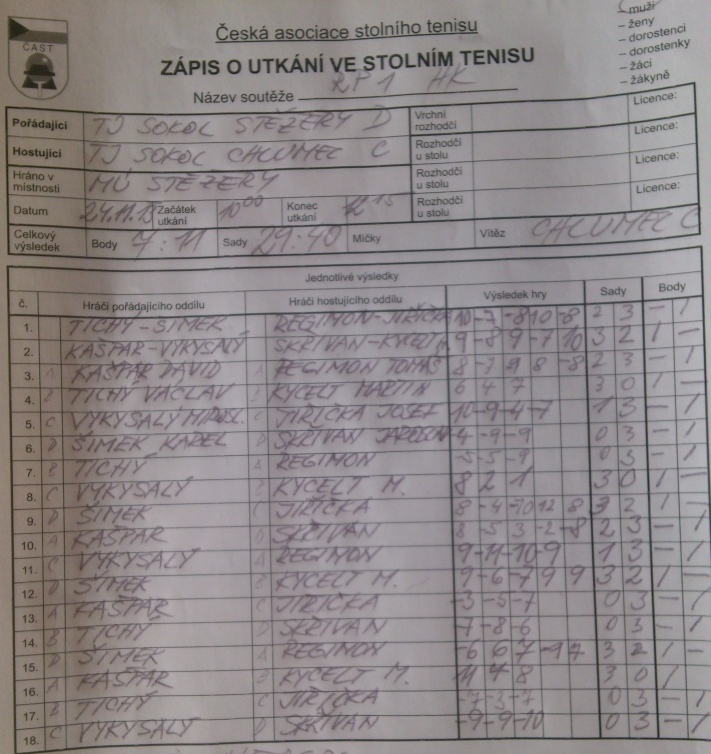 Česká asociace stolního tenisu
ČAST
ZÁPIS O UTKÁNÍ VE STOLNÍM TENISU
Název soutěže RP1 HK
muži
– ženy
– dorostenci
– dorostenky
– žáci
– žákyně
Pořádající TJ SOKOL STĚŽERY D Vrchní rozhodčí Licence:
Hostující TJ SOKOL CHLUMEC C Rozhodčí u stolu Licence:
Hráno v místnosti MÚ STĚŽERY Rozhodčí u stolu Licence:
Datum 24.11.13 Začátek utkání 10 00 Konec utkání 12 15 Rozhodčí u stolu Licence:
Celkový výsledek Body 7:11 Sady 29:40 Míčky Vítěz CHLUMEC C
Jednotlivé výsledky
č. Hráči pořádajícího oddílu Hráči hostujícího oddílu Výsledek hry Sady Body
1. TICHÝ - ŠIMEK REGIMON - JIŘIČKA 10 -7 -8 10 -8 2 3 – 1
2. KAŠPAR - VYKYSALÝ SKŘIVAN - KYCELT 9 -8 9 -7 10 3 2 1 –
3. A KAŠPAR DAVID A REGIMON TOMÁŠ 8 -7 9 8 -8 2 3 – 1
4. B TICHÝ VÁCLAV B KYCELT MARTIN 6 4 7 3 0 1 –
5. C VYKYSALÝ MIROSL. C JIŘIČKA JOSEF 10 -9 -4 -7 1 3 – 1
6. D ŠIMEK KAREL D SKŘIVAN JAROSLAV -4 -9 -9 0 3 – 1
7. B TICHÝ A REGIMON -5 -5 -9 0 3 – 1
8. C VYKYSALÝ B KYCELT M. 8 2 1 3 0 1 –
9. D ŠIMEK C JIŘIČKA 8 -4 -10 12 8 3 2 1 –
10. A KAŠPAR D SKŘIVAN -8 5 3 -2 -8 2 3 – 1
11. C VYKYSALÝ A REGIMON 9 -11 -10 -9 1 3 – 1
12. D ŠIMEK B KYCELT M. 9 -6 -7 9 9 3 2 1 –
13. A KAŠPAR C JIŘIČKA -3 -5 -7 0 3 – 1
14. B TICHÝ D SKŘIVAN -7 -8 -6 0 3 – 1
15. D ŠIMEK A REGIMON -6 6 7 -9 7 3 2 1 –
16. A KAŠPAR B KYCELT M. 11 4 8 3 0 1 –
17. B TICHÝ C JIŘIČKA -7 -3 -7 0 3 – 1
18. C VYKYSALÝ D SKŘIVAN -9 -9 -10 0 3 – 1